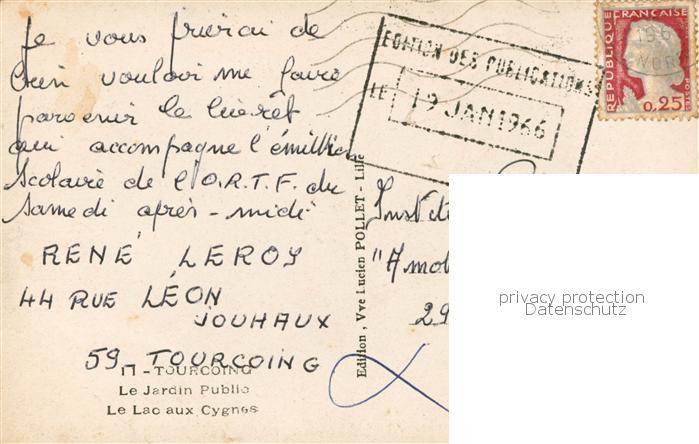 Je vous prierai de
bien vouloir me faire
parvenir le livret
qui accompagne l'émission
scolaire de l'O.R.T.F. du
samedi après-midi
RENÉ LEROY
44 RUE LÉON
JOUHAUX
59 TOURCOING
17 - TOURCOING
Le Jardin Public
Le Lac aux Cygnes
Edition, Vve Lucien POLLET - Lille
EDITION DES PUBLICATIONS
LE 19 JAN 1966
REPUBLIQUE FRANCAISE
POSTES
0,25
29
privacy protection
Datenschutz